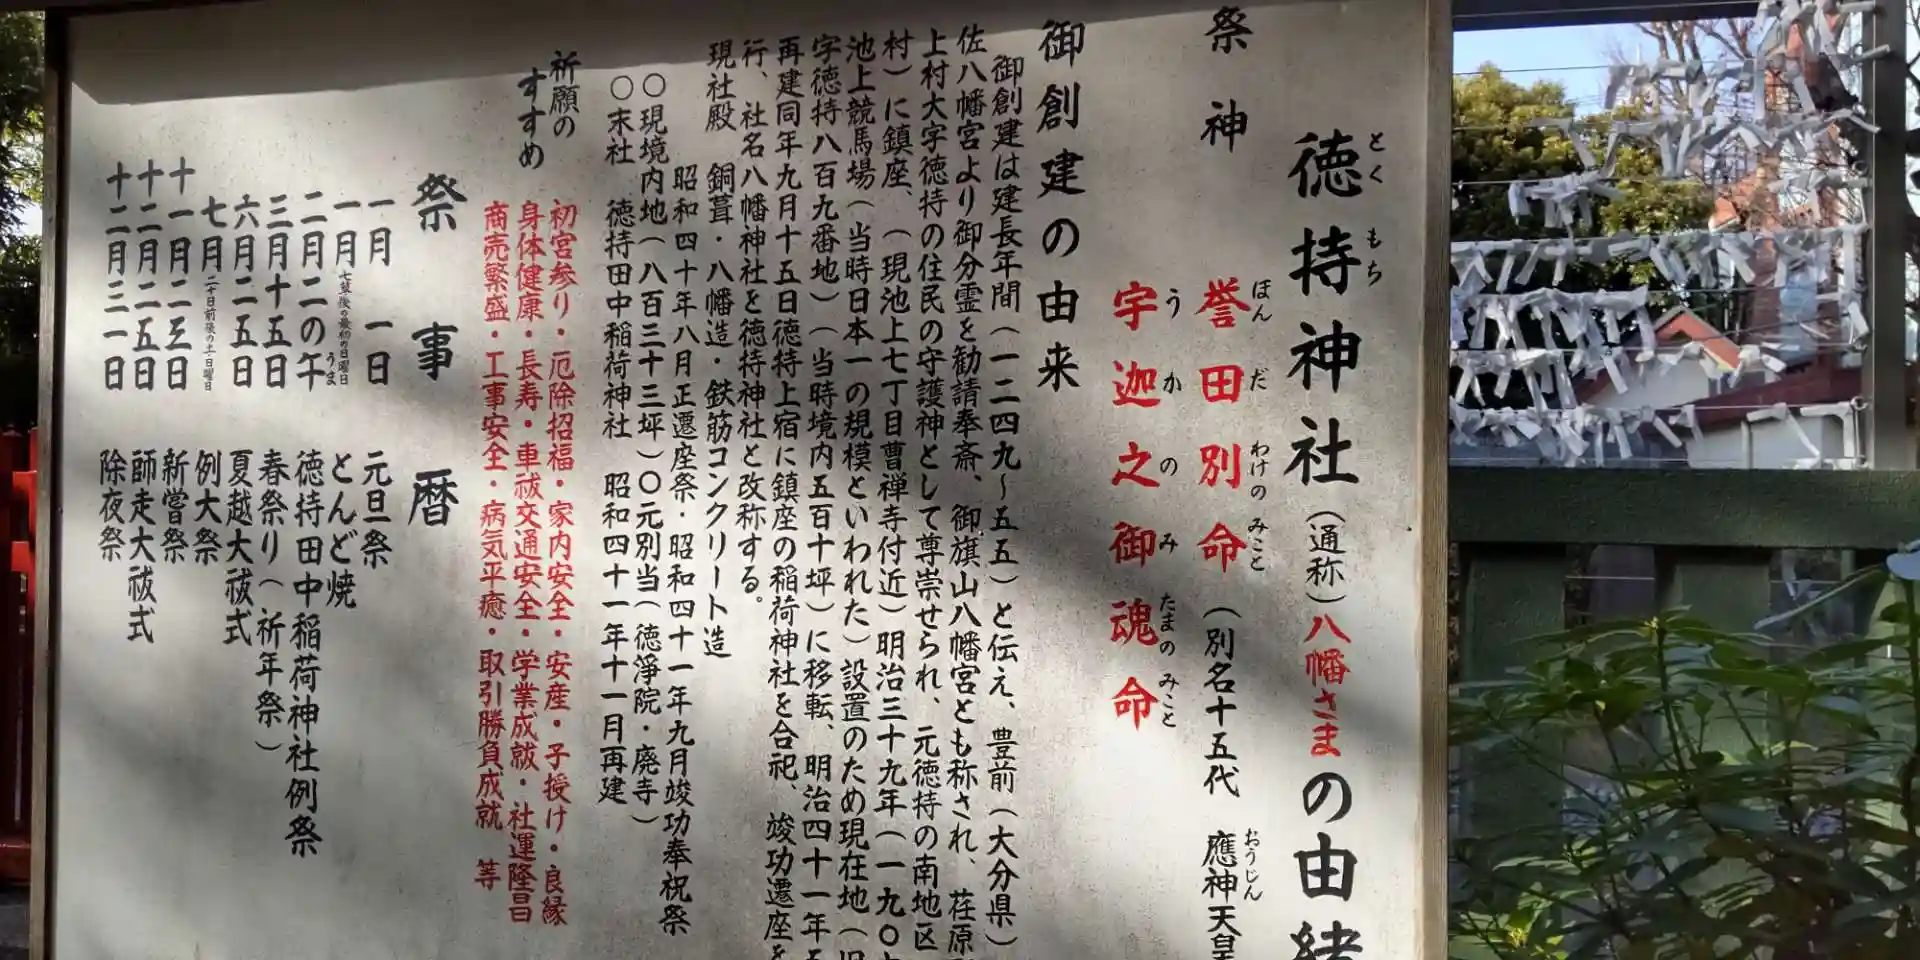 徳持神社（通称）八幡さまの由緒
とくもち
祭神
誉田別命（別名十五代 應神天皇
ほんだわけのみこと
おうじん
宇迦之御魂命
うかのみたまのみこと
御創建の由来
御創建は建長年間（一二四九～五五）と伝え、豊前（大分県）
佐八幡宮より御分霊を勧請奉斎、御旗山八幡宮とも称され、荏原
上村大字徳持の住民の守護神として尊崇せられ、元徳持の南地区
村）に鎮座、（現池上七丁目曹禅寺付近）明治三十九年（一九〇
池上競馬場（当時日本一の規模といわれた）設置のため現在地（旧
字徳持八百九番地）（当時境内五百十坪）に移転、明治四十一年五
再建同年九月十五日徳持上宿に鎮座の稲荷神社を合祀、竣功遷座を
行、社名八幡神社を徳持神社と改称する。
現社殿 銅葺・八幡造・鉄筋コンクリート造
昭和四十年八月正遷座祭・昭和四十一年九月竣功奉祝祭
〇現境内地（八百三十三坪）〇元別当（徳淨院・廃寺）
〇末社 徳持田中稲荷神社 昭和四十一年十一月再建
祈願のすすめ
初宮参り・厄除招福・家内安全・安産・子授け・良縁
身体健康・長寿・車祓交通安全・学業成就・社運隆昌
商売繁盛・工事安全・病気平癒・取引勝負成就 等
祭事暦
一月 一日 元旦祭
一月 七草後の最初の日曜日 とんど焼
二月二の午 徳持田中稲荷神社例祭
うま
三月十五日 春祭り（祈年祭）
六月二五日 夏越大祓式
七月 二十日前後の土日曜日 例大祭
十一月二三日 新嘗祭
十二月二五日 師走大祓式
十二月三一日 除夜祭